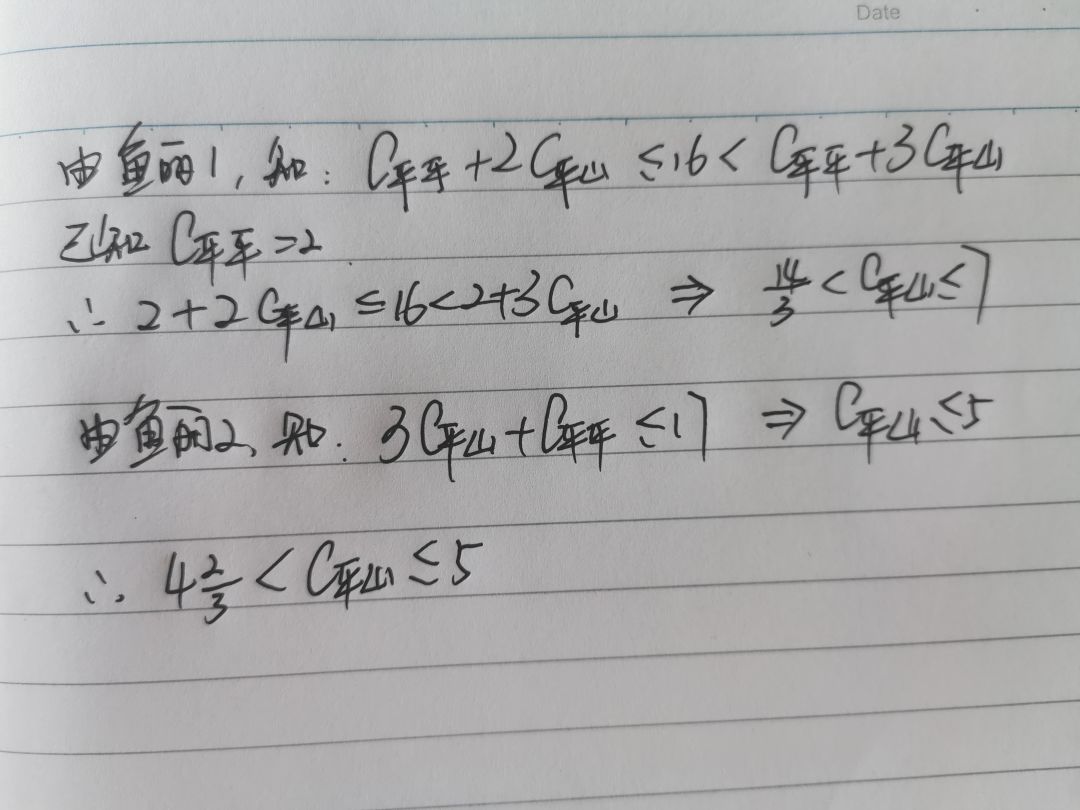 Date
由鱼丽1, 知: C平平+2C平山≤16<C平平+3C平山
已知 C平平=2
∴ 2+2C平山≤16<2+3C平山 ⇒ 14/3<C平山≤7
由鱼丽2, 知: 3C平山+C平平≤17 ⇒ C平山≤5
∴ 4 2/3<C平山≤5